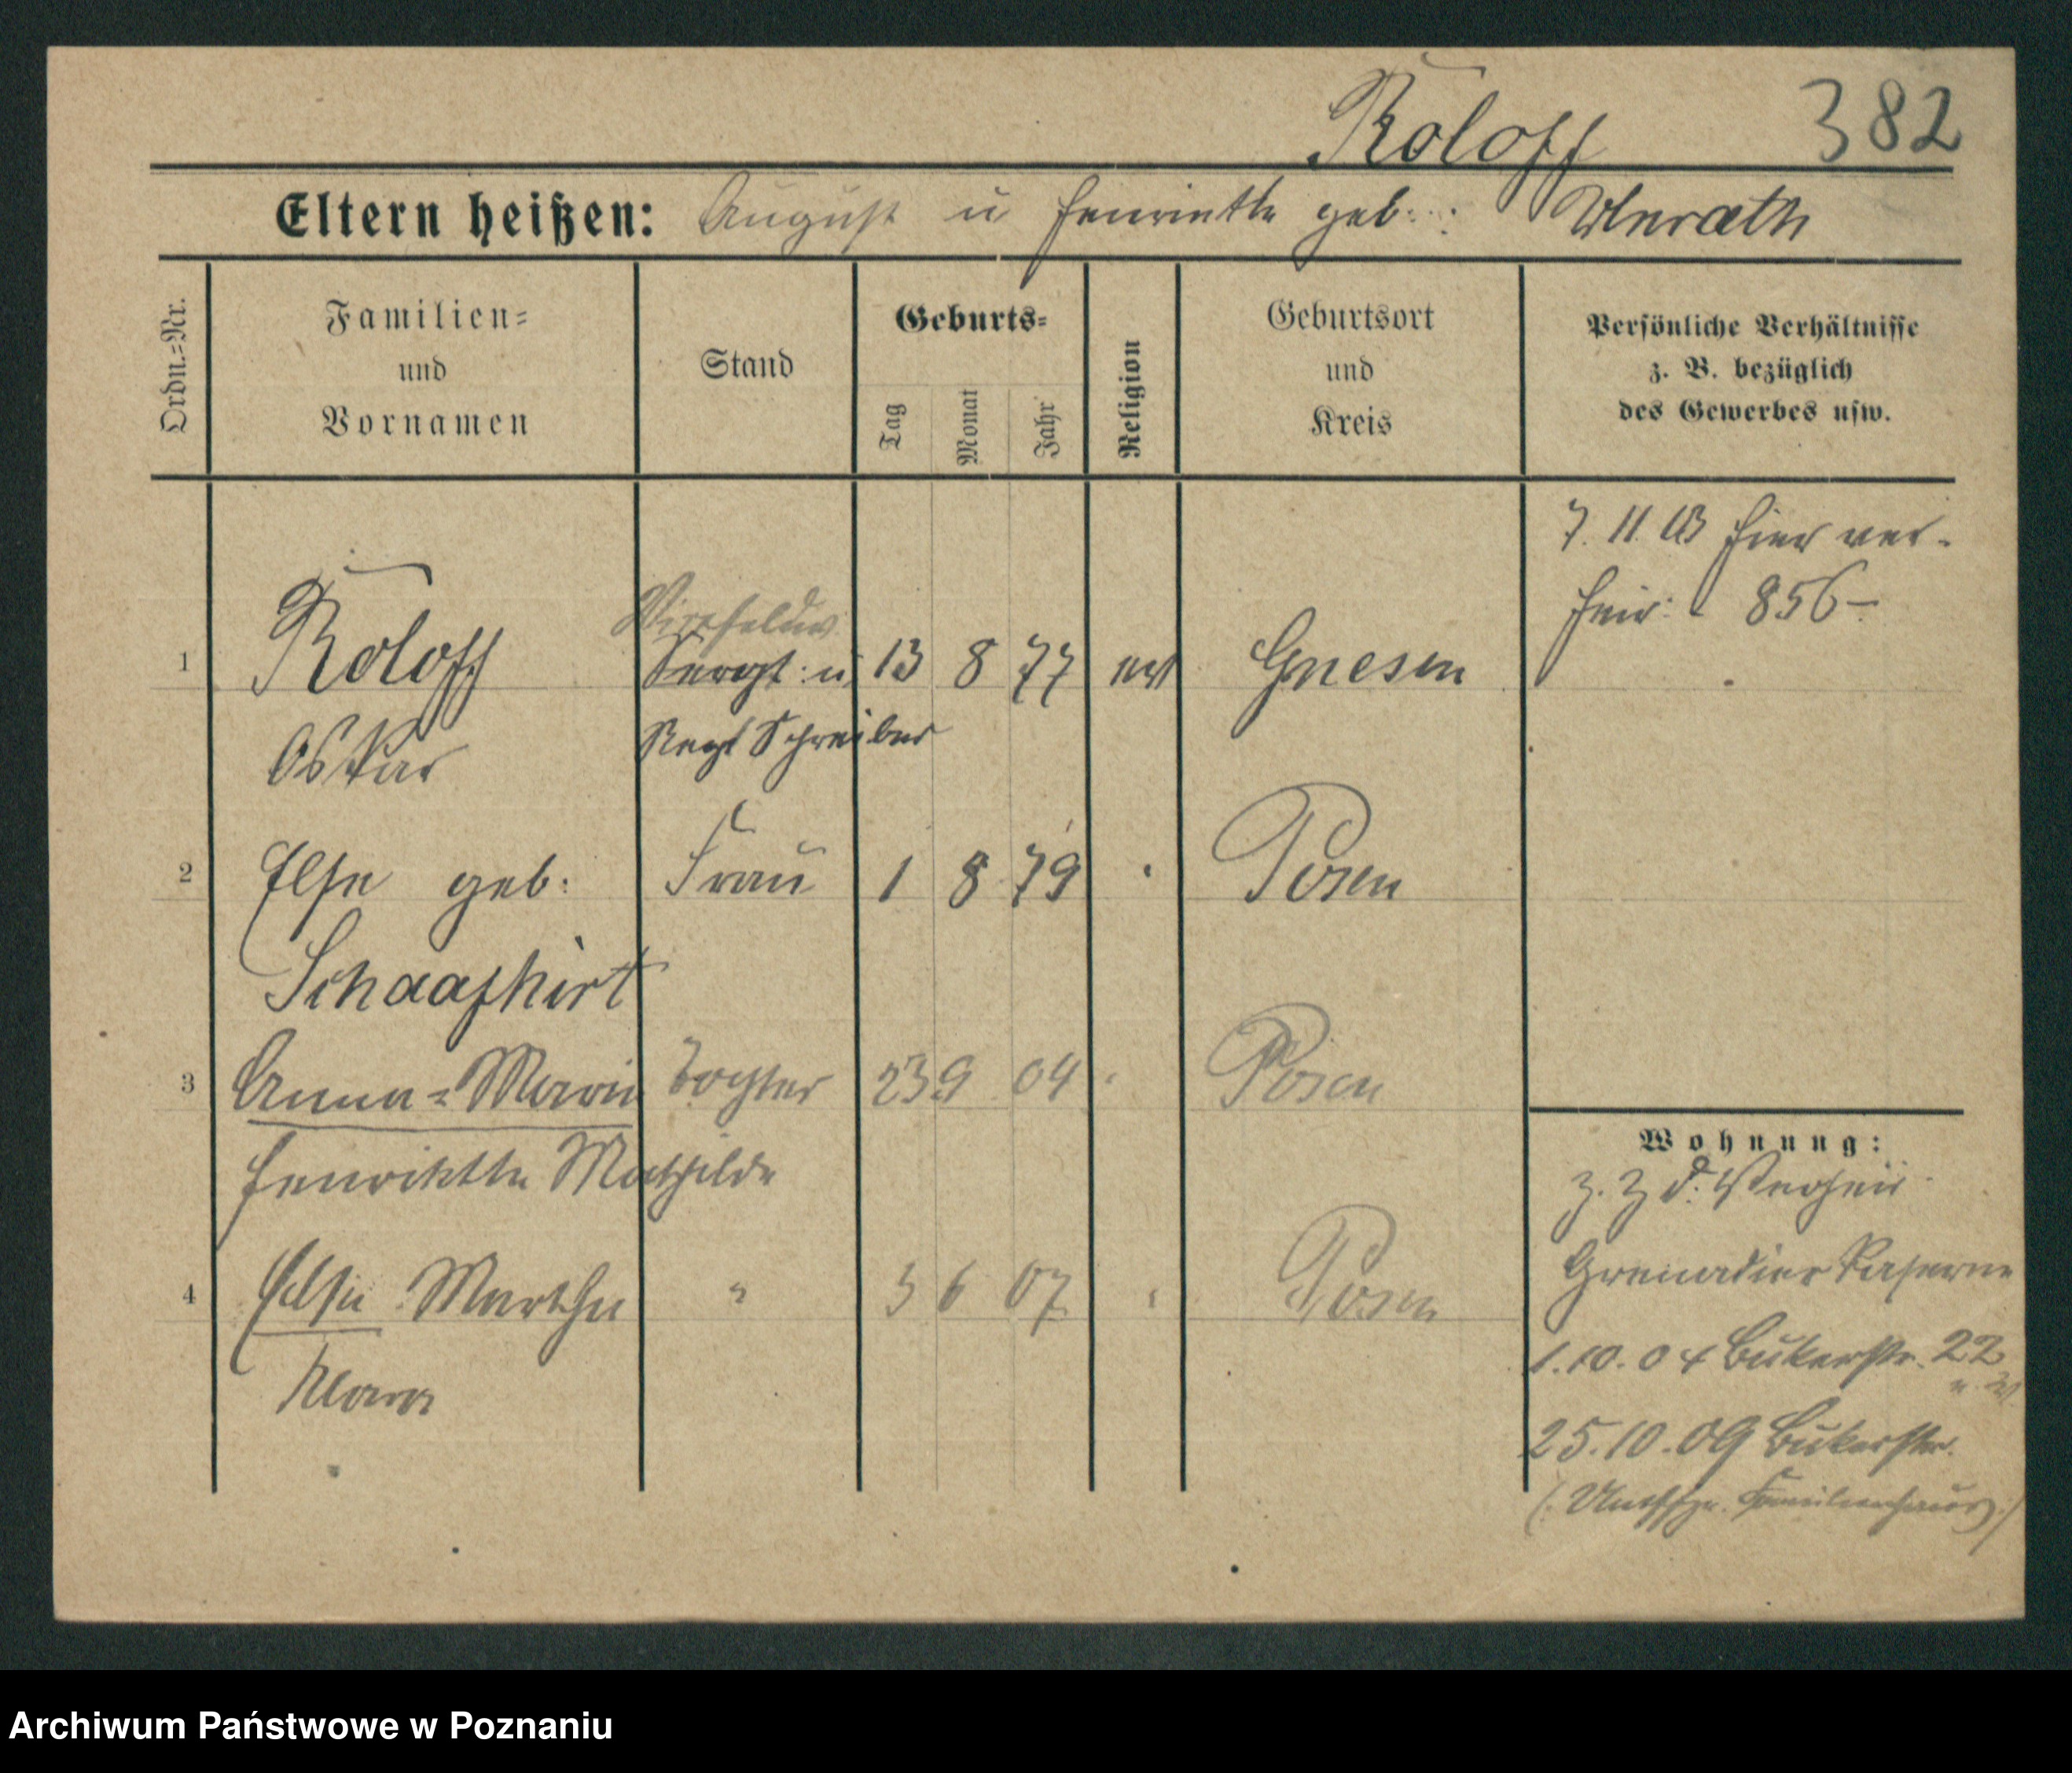 Roloff 382
Eltern heißen: August u Henriette geb:
Ordn.=Nr.
Familien=
und
Vornamen
Stand
Geburts=
Tag Monat Jahr
Religion
Geburtsort
und
Kreis
Persönliche Verhältnisse
z. B. bezüglich
des Gewerbes usw.
7. 11. 03 hier ver-
heir: 856-
Vizefeldw
1 Roloff Sergt: u 13 8 77 ev Gnesen
Oskar Regt Schreiber
2 Else geb: Frau 1 8 79 Posen
Schaafhirt
3 Anna=Marie Tochter 23 9 04 Posen
Henriette Mathilde
4 Else Martha " 3 6 07 Posen
Klara
Wohnung:
z. Z d.
Grenadier Kaserne
1.10.04 Bukerstr. 22
25.10.09 Bukerstr.
(Unteroffz. Familienhaus)
Archiwum Państwowe w Poznaniu